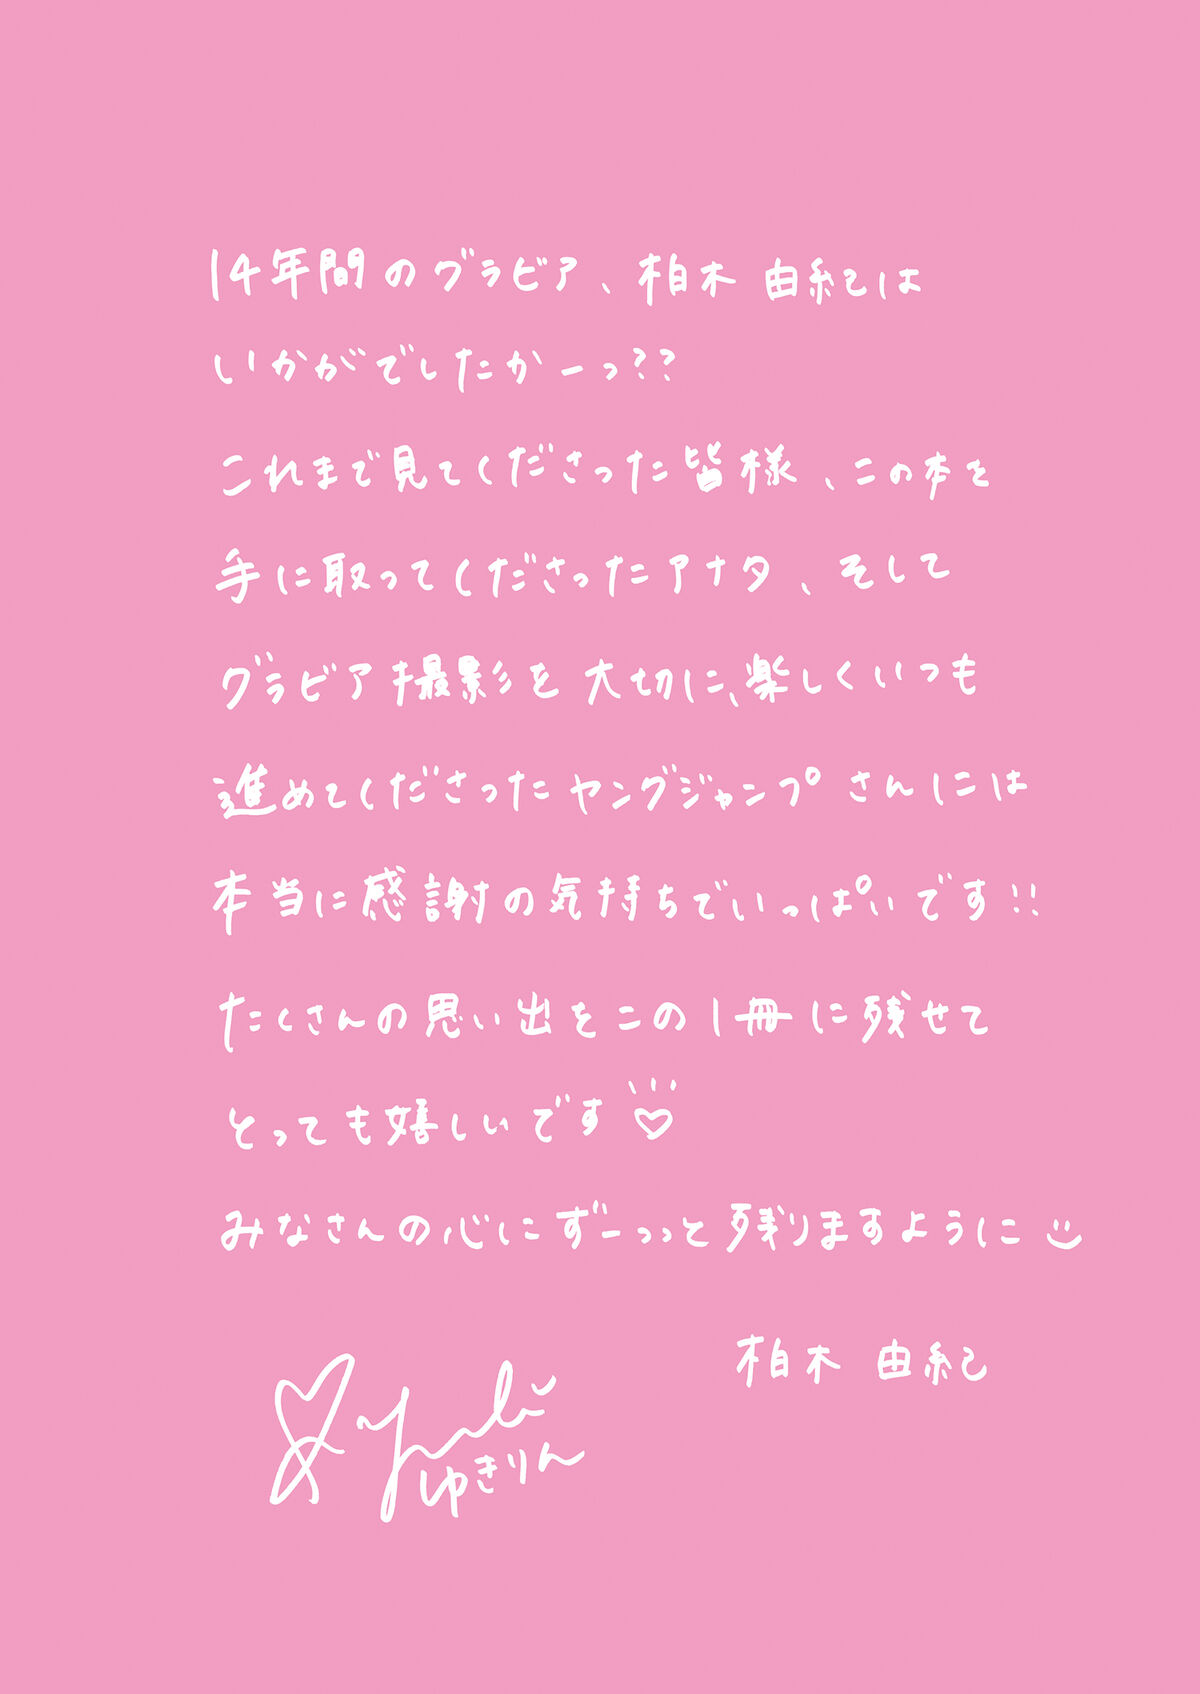 14年間のグラビア、柏木 由紀は
いかがでしたかーっ??
これまで見てくださった皆様、この本を
手に取ってくださったアナタ、そして
グラビア撮影を大切に、楽しくいつも
進めてくださったヤングジャンプさんには
本当に感謝の気持ちでいっぱいです!!
たくさんの思い出をこの1冊に残せて
とっても嬉しいです♡
みなさんの心にずーっっと残りますように
柏木 由紀
Yuki
ゆきりん